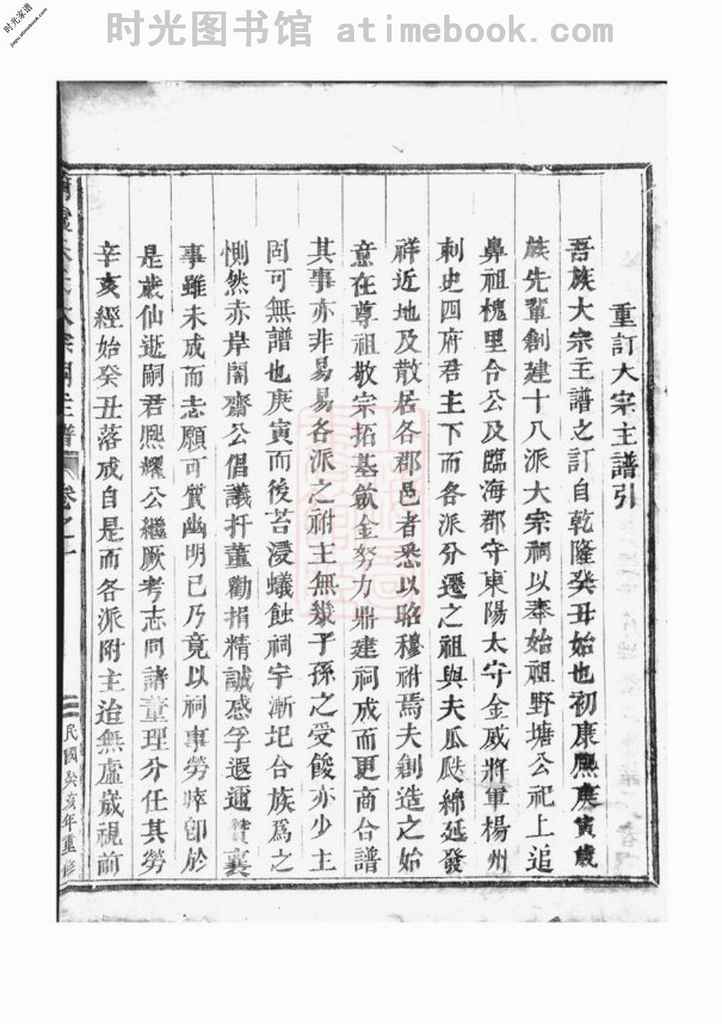 时光家谱
jiapu.atimebook.com
时光图书馆 atimebook.com
重訂大宗主譜引
吾族大宗主譜之訂自乾隆癸丑始也初康熙庚寅歲
族先輩創建十八派大宗祠以奉始祖野塘公祀上追
鼻祖槐里合公及臨海郡守東陽太守金威將軍楊州
刺史四府君主下而各派分遷之祖與夫瓜瓞綿延發
祥近地及散居各郡邑者悉以昭穆祔焉夫創造之始
意在尊祖敬宗拓基歛金努力鼎建祠成而更商合譜
其事亦非易易各派之祔主無幾子孫之受餕亦少主
固可無譜也庚寅而後苔浸蟻蝕祠宇漸圮合族爲之
惻然赤岸闇齋公倡議扞董勸捐精誠感孚遐邇贊襄
事雖未成而志願可質幽明已乃竟以祠事勞瘁卽於
是歲仙逝嗣君熙耀公繼厥考志同諸董理分任其勞
辛亥經始癸丑落成自是而各派附主治無虛歲視前
宗祠主譜
卷之一
民國癸亥年重修